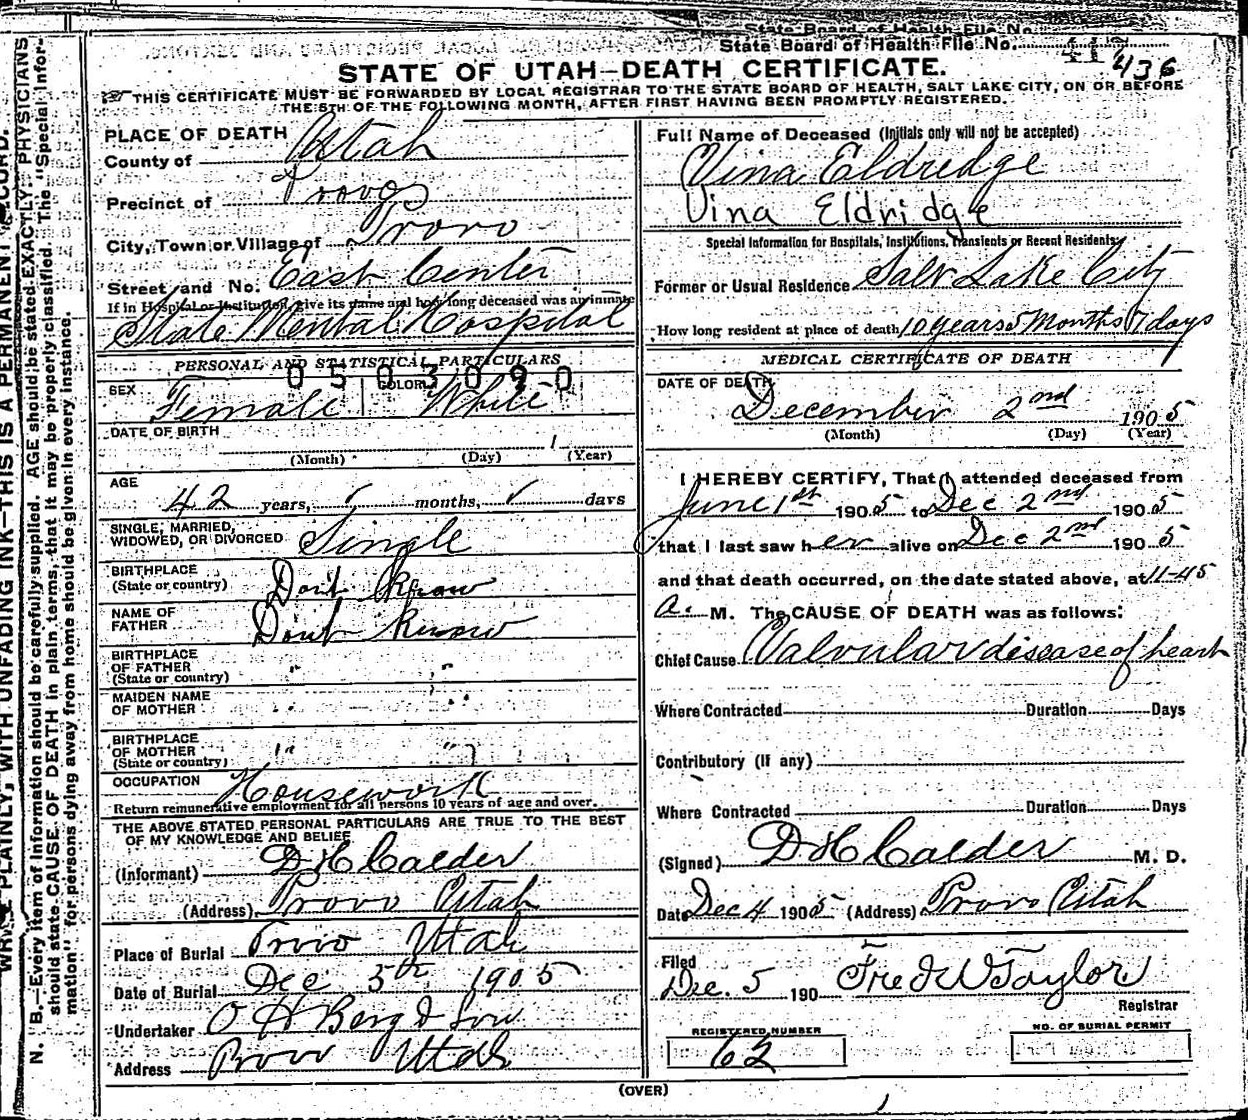 State Board of Health File No.
State Board of Health File No. 436
STATE OF UTAH—DEATH CERTIFICATE.
THIS CERTIFICATE MUST BE FORWARDED BY LOCAL REGISTRAR TO THE STATE BOARD OF HEALTH, SALT LAKE CITY, ON OR BEFORE
THE 5TH OF THE FOLLOWING MONTH, AFTER FIRST HAVING BEEN PROMPTLY REGISTERED.
PLACE OF DEATH
County of Utah
Precinct of Provo
City, Town or Village of Provo
Street and No. East Center
If in Hospital or Institution, give its name and how long deceased was an inmate
State Mental Hospital
PERSONAL AND STATISTICAL PARTICULARS
0503090
SEX Female COLOR White
DATE OF BIRTH 1
(Month) (Day) (Year)
AGE
42 years, months, days
SINGLE, MARRIED,
WIDOWED, OR DIVORCED Single
BIRTHPLACE
(State or country) Dont Know
NAME OF
FATHER Dont Know
BIRTHPLACE
OF FATHER
(State or country) " "
MAIDEN NAME
OF MOTHER "
BIRTHPLACE
OF MOTHER
(State or country) " "
OCCUPATION Housework
Return remunerative employment for all persons 10 years of age and over.
THE ABOVE STATED PERSONAL PARTICULARS ARE TRUE TO THE BEST
OF MY KNOWLEDGE AND BELIEF
(Informant) D H Calder
(Address) Provo Utah
Place of Burial Provo Utah
Date of Burial Dec 5th 1905
Undertaker O H Berg & Son
Address Provo Utah
Full Name of Deceased (Initials only will not be accepted)
Vina Eldredge
Vina Eldridge
Special Information for Hospitals, Institutions, Transients or Recent Residents:
Former or Usual Residence Salt Lake City
How long resident at place of death 10 years 5 Months 7 days
MEDICAL CERTIFICATE OF DEATH
DATE OF DEATH
December 2nd 1905
(Month) (Day) (Year)
I HEREBY CERTIFY, That I attended deceased from
June 1st 1905 to Dec 2nd 1905
that I last saw her alive on Dec 2nd 1905
and that death occurred, on the date stated above, at 11-45
a. M. The CAUSE OF DEATH was as follows:
Chief Cause Valvular disease of heart
Where Contracted Duration Days
Contributory (If any)
Where Contracted Duration Days
(Signed) D H Calder M. D.
Date Dec 4 1905 (Address) Provo Utah
Filed
Dec. 5 190 Fred W Taylor
Registrar
REGISTERED NUMBER
62
NO. OF BURIAL PERMIT
(OVER)
N. B.—Every item of information should be carefully supplied. AGE should be stated EXACTLY. PHYSICIANS
should state CAUSE OF DEATH in plain terms, that it may be properly classified. The "Special Infor-
mation" for persons dying away from home should be given in every instance.
PLAINLY, WITH UNFADING INK—THIS IS A PERMANENT RECORD.